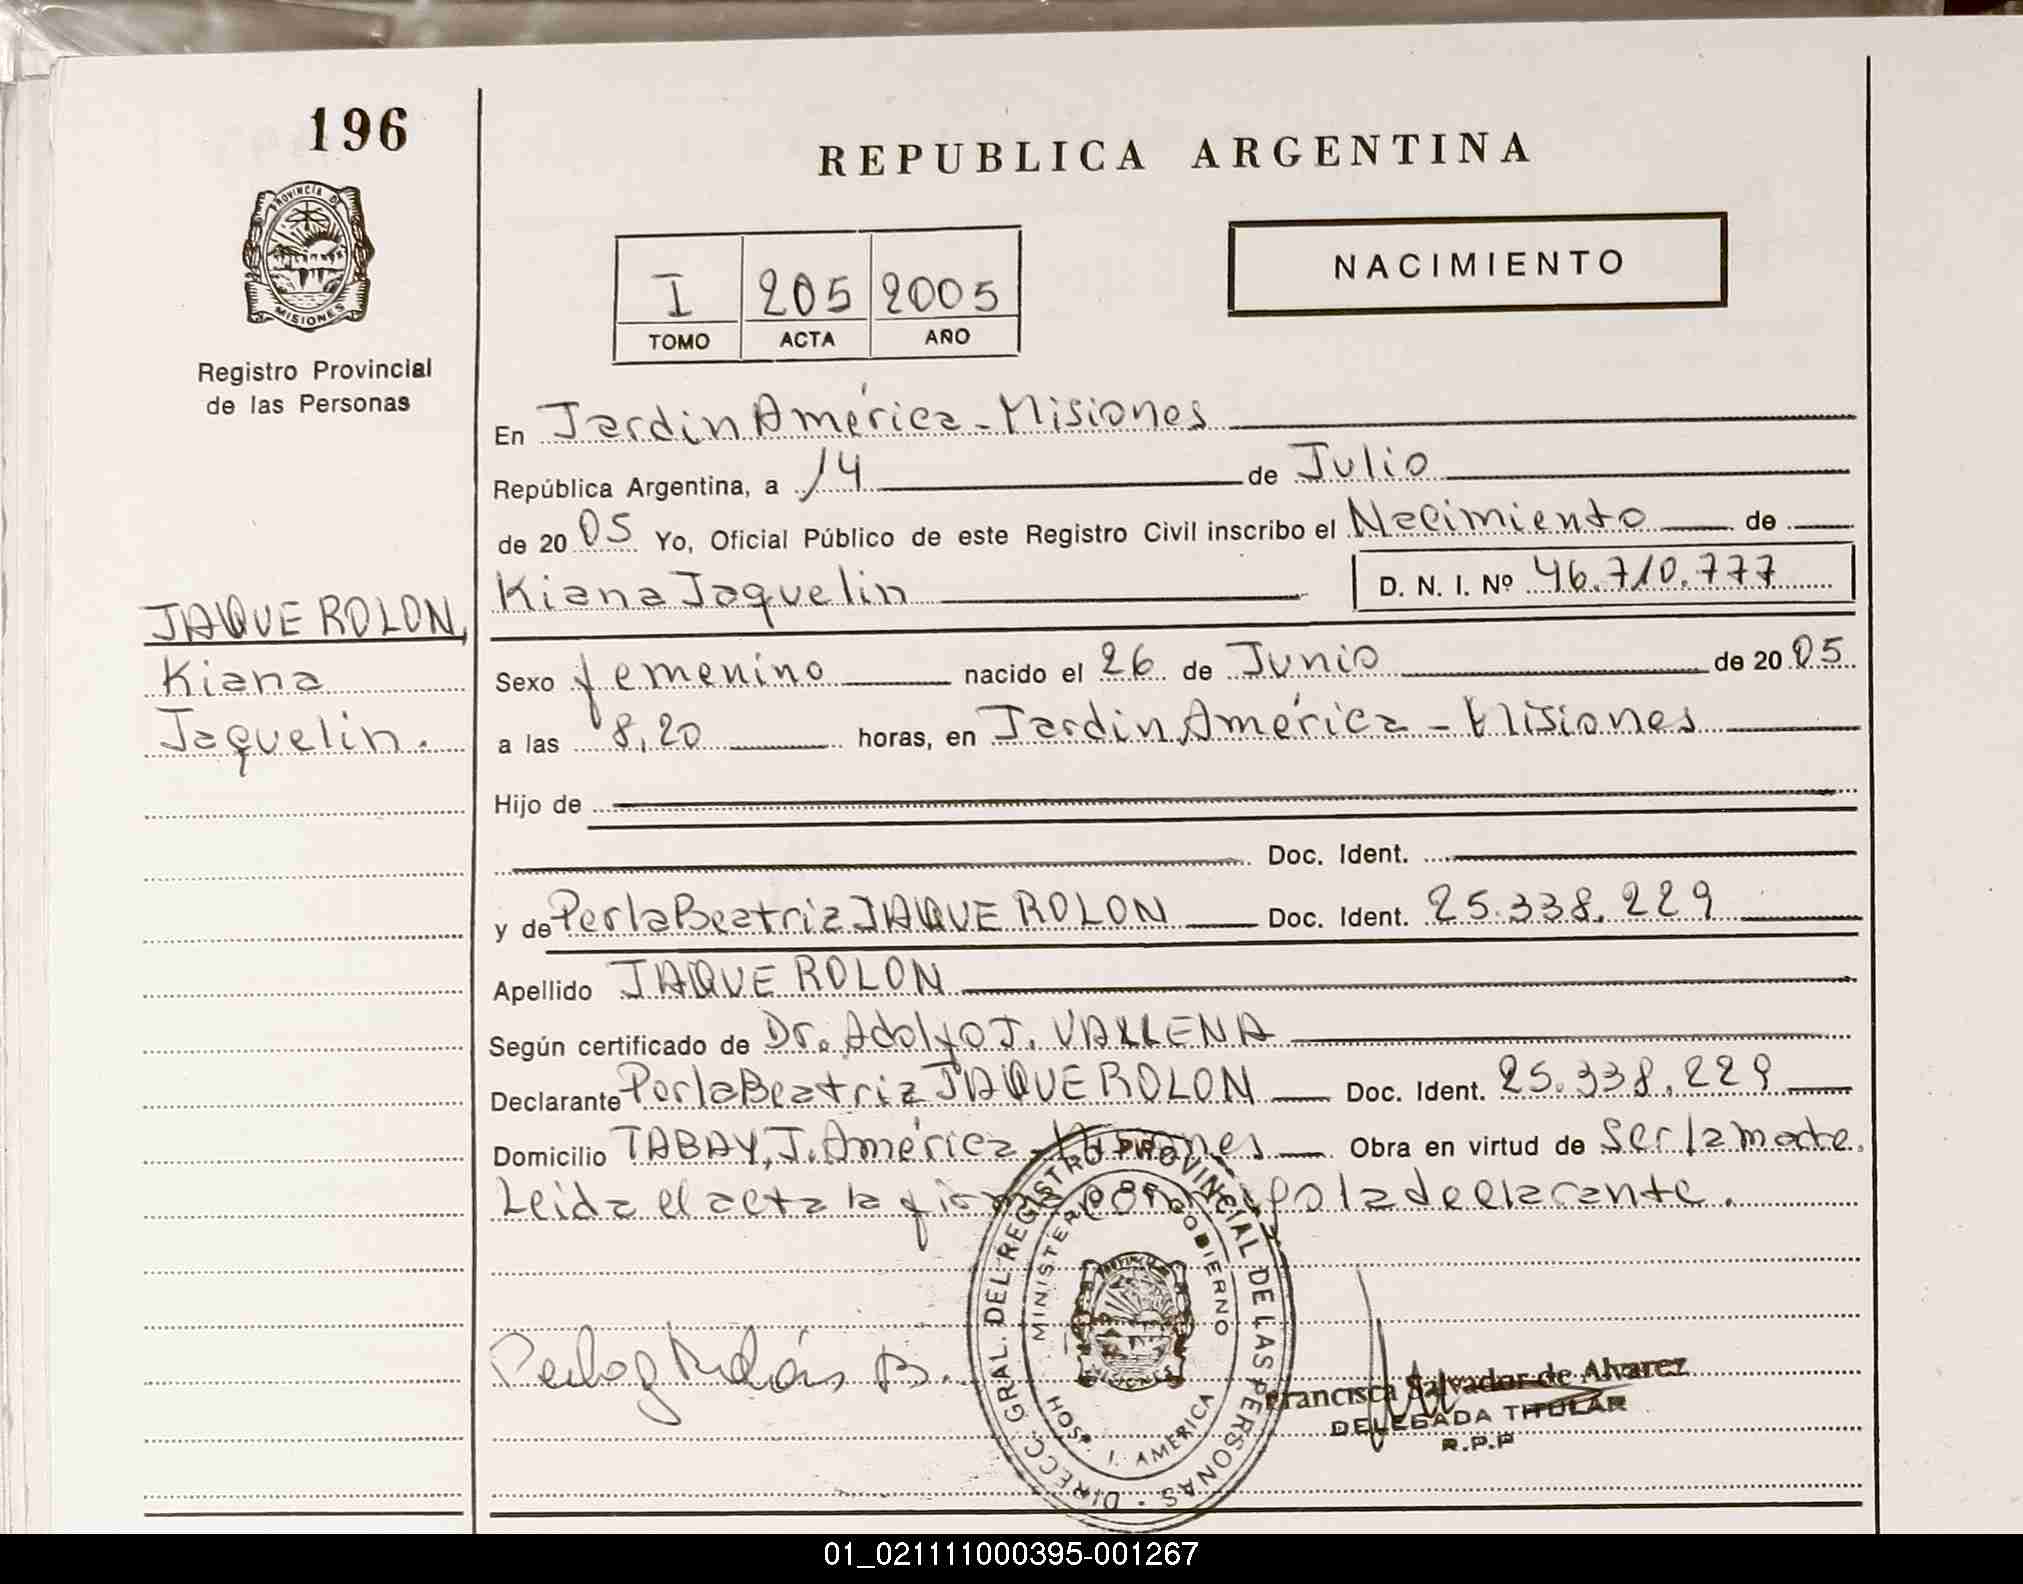 196
PROVINCIA DE
MISIONES
Registro Provincial
de las Personas
JAQUE ROLON,
Kiana
Jaquelin.
REPUBLICA ARGENTINA
I 205 2005
TOMO ACTA AÑO
NACIMIENTO
En Jardin América - Misiones
República Argentina, a 14 de Julio
de 2005 Yo, Oficial Público de este Registro Civil inscribo el Nacimiento de
Kiana Jaquelin D. N. I. Nº 46.710.777
Sexo femenino nacido el 26 de Junio de 2005
a las 8,20 horas, en Jardin América - Misiones
Hijo de
Doc. Ident.
y de Perla Beatriz JAQUE ROLON Doc. Ident. 25.338.229
Apellido JAQUE ROLON
Según certificado de Dr. Adolfo J. VALLENA
Declarante Perla Beatriz JAQUE ROLON Doc. Ident. 25.338.229
Domicilio TABAY, J. América - Misiones Obra en virtud de Ser la madre.
Leida el acta la firma la declarante.
DIRECC. GRAL. DEL REGISTRO PROVINCIAL DE LAS PERSONAS
MINISTERIO GOBIERNO
HOSP. J. AMERICA
Francisca Salvador de Alvarez
DELEGADA TITULAR
R.P.P
01_021111000395-001267